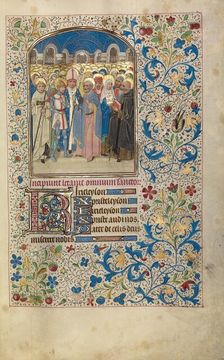 Incipiunt letanie omnium sanctor
Kirieleyson
Xpisteleyson
Kirieleyson
Xpiste audi nos
Pater de celis deus
miserere nobis